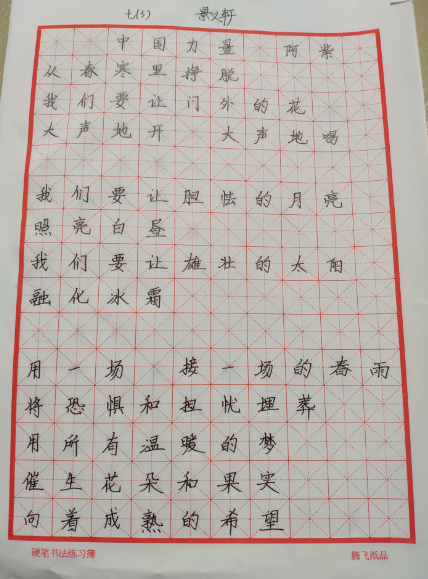 七(3) 景义轩
中国力量 阿紫
从春寒里挣脱
我们要让门外的花
大声地开 大声地喝
我们要让胆怯的月亮
照亮白昼
我们要让雄壮的太阳
融化冰霜
用一场 接一场的春雨
将恐惧和担忧埋葬
用所有温暖的梦
催生花朵和果实
向着成熟的希望
硬笔书法练习簿 腾飞纸品